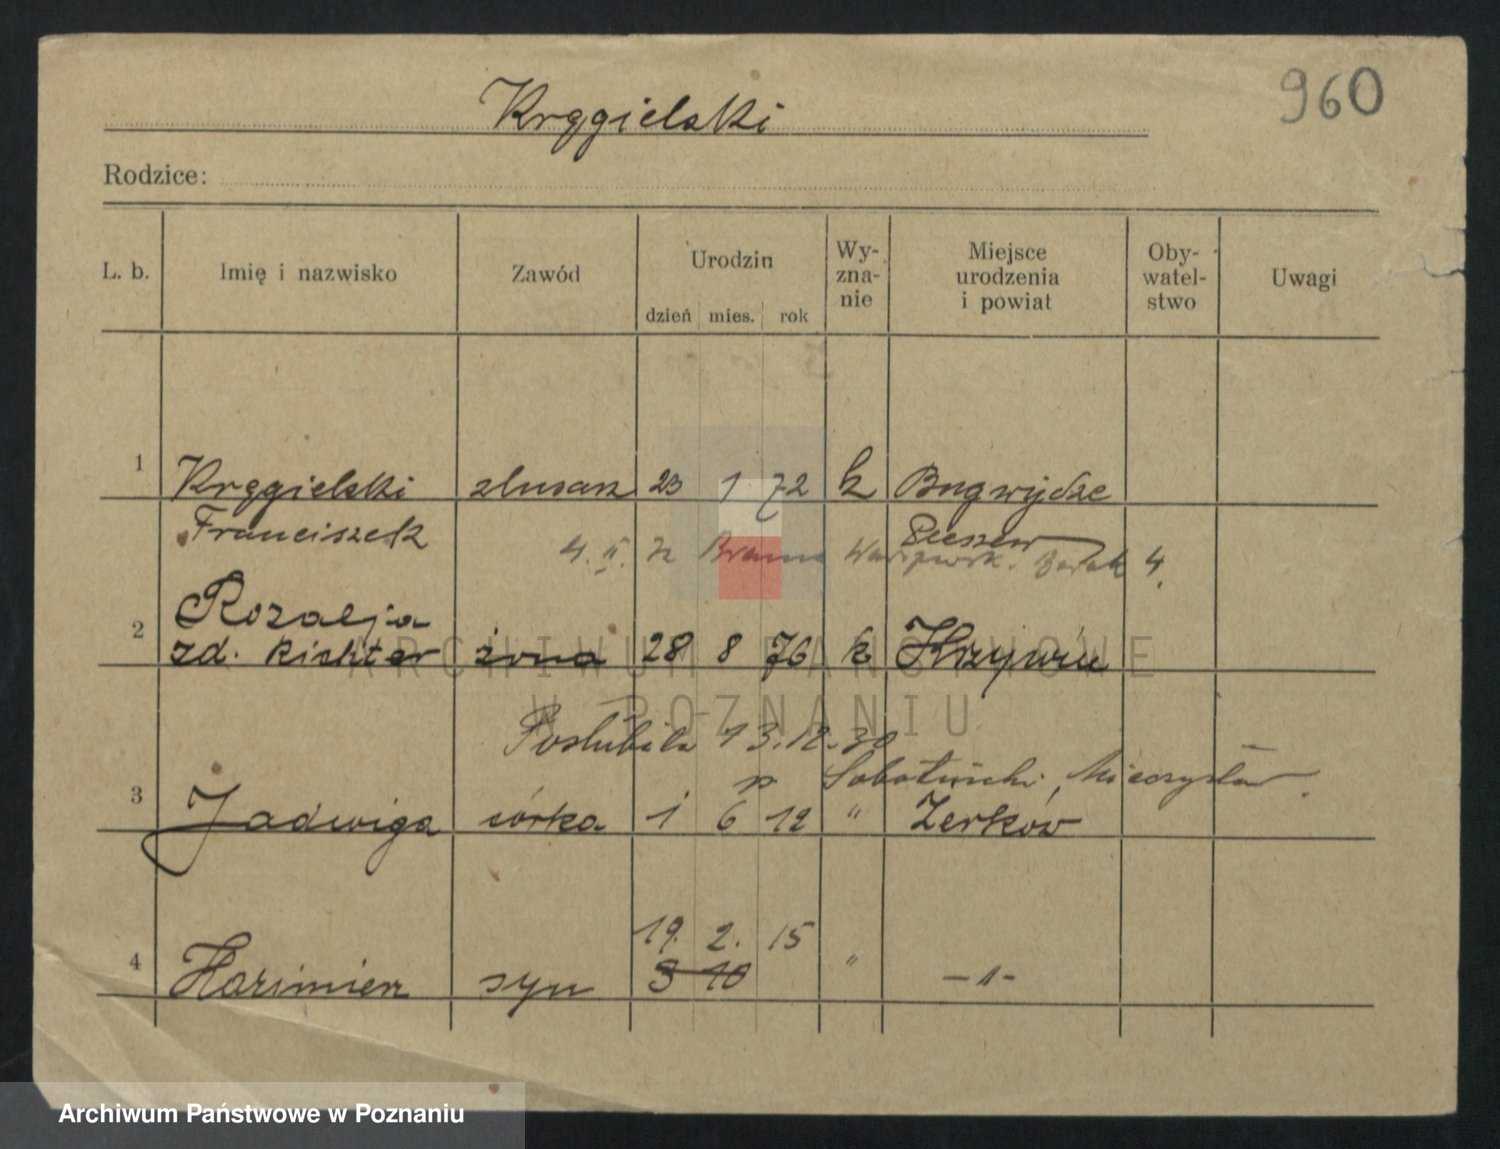 960
Kręgielski
Rodzice:
L. b. Imię i nazwisko Zawód Urodzin dzień mies. rok Wy-zna-nie Miejsce urodzenia i powiat Oby-watel-stwo Uwagi
1 Kręgielski ślusarz 23 1 72 k
Franciszek Pleszew
4. II. Brama 4.
Rozalja
2 zd. Richter żona 28 8 76 k Krzywiń
Poślubiła 13.12.30
p Mieczysław.
3 Jadwiga córka 1 6 12 " Żerków
19. 2. 15
4 Kazimierz syn 3 10 " -"-
ARCHIWUM PAŃSTWOWE
W POZNANIU
Archiwum Państwowe w Poznaniu